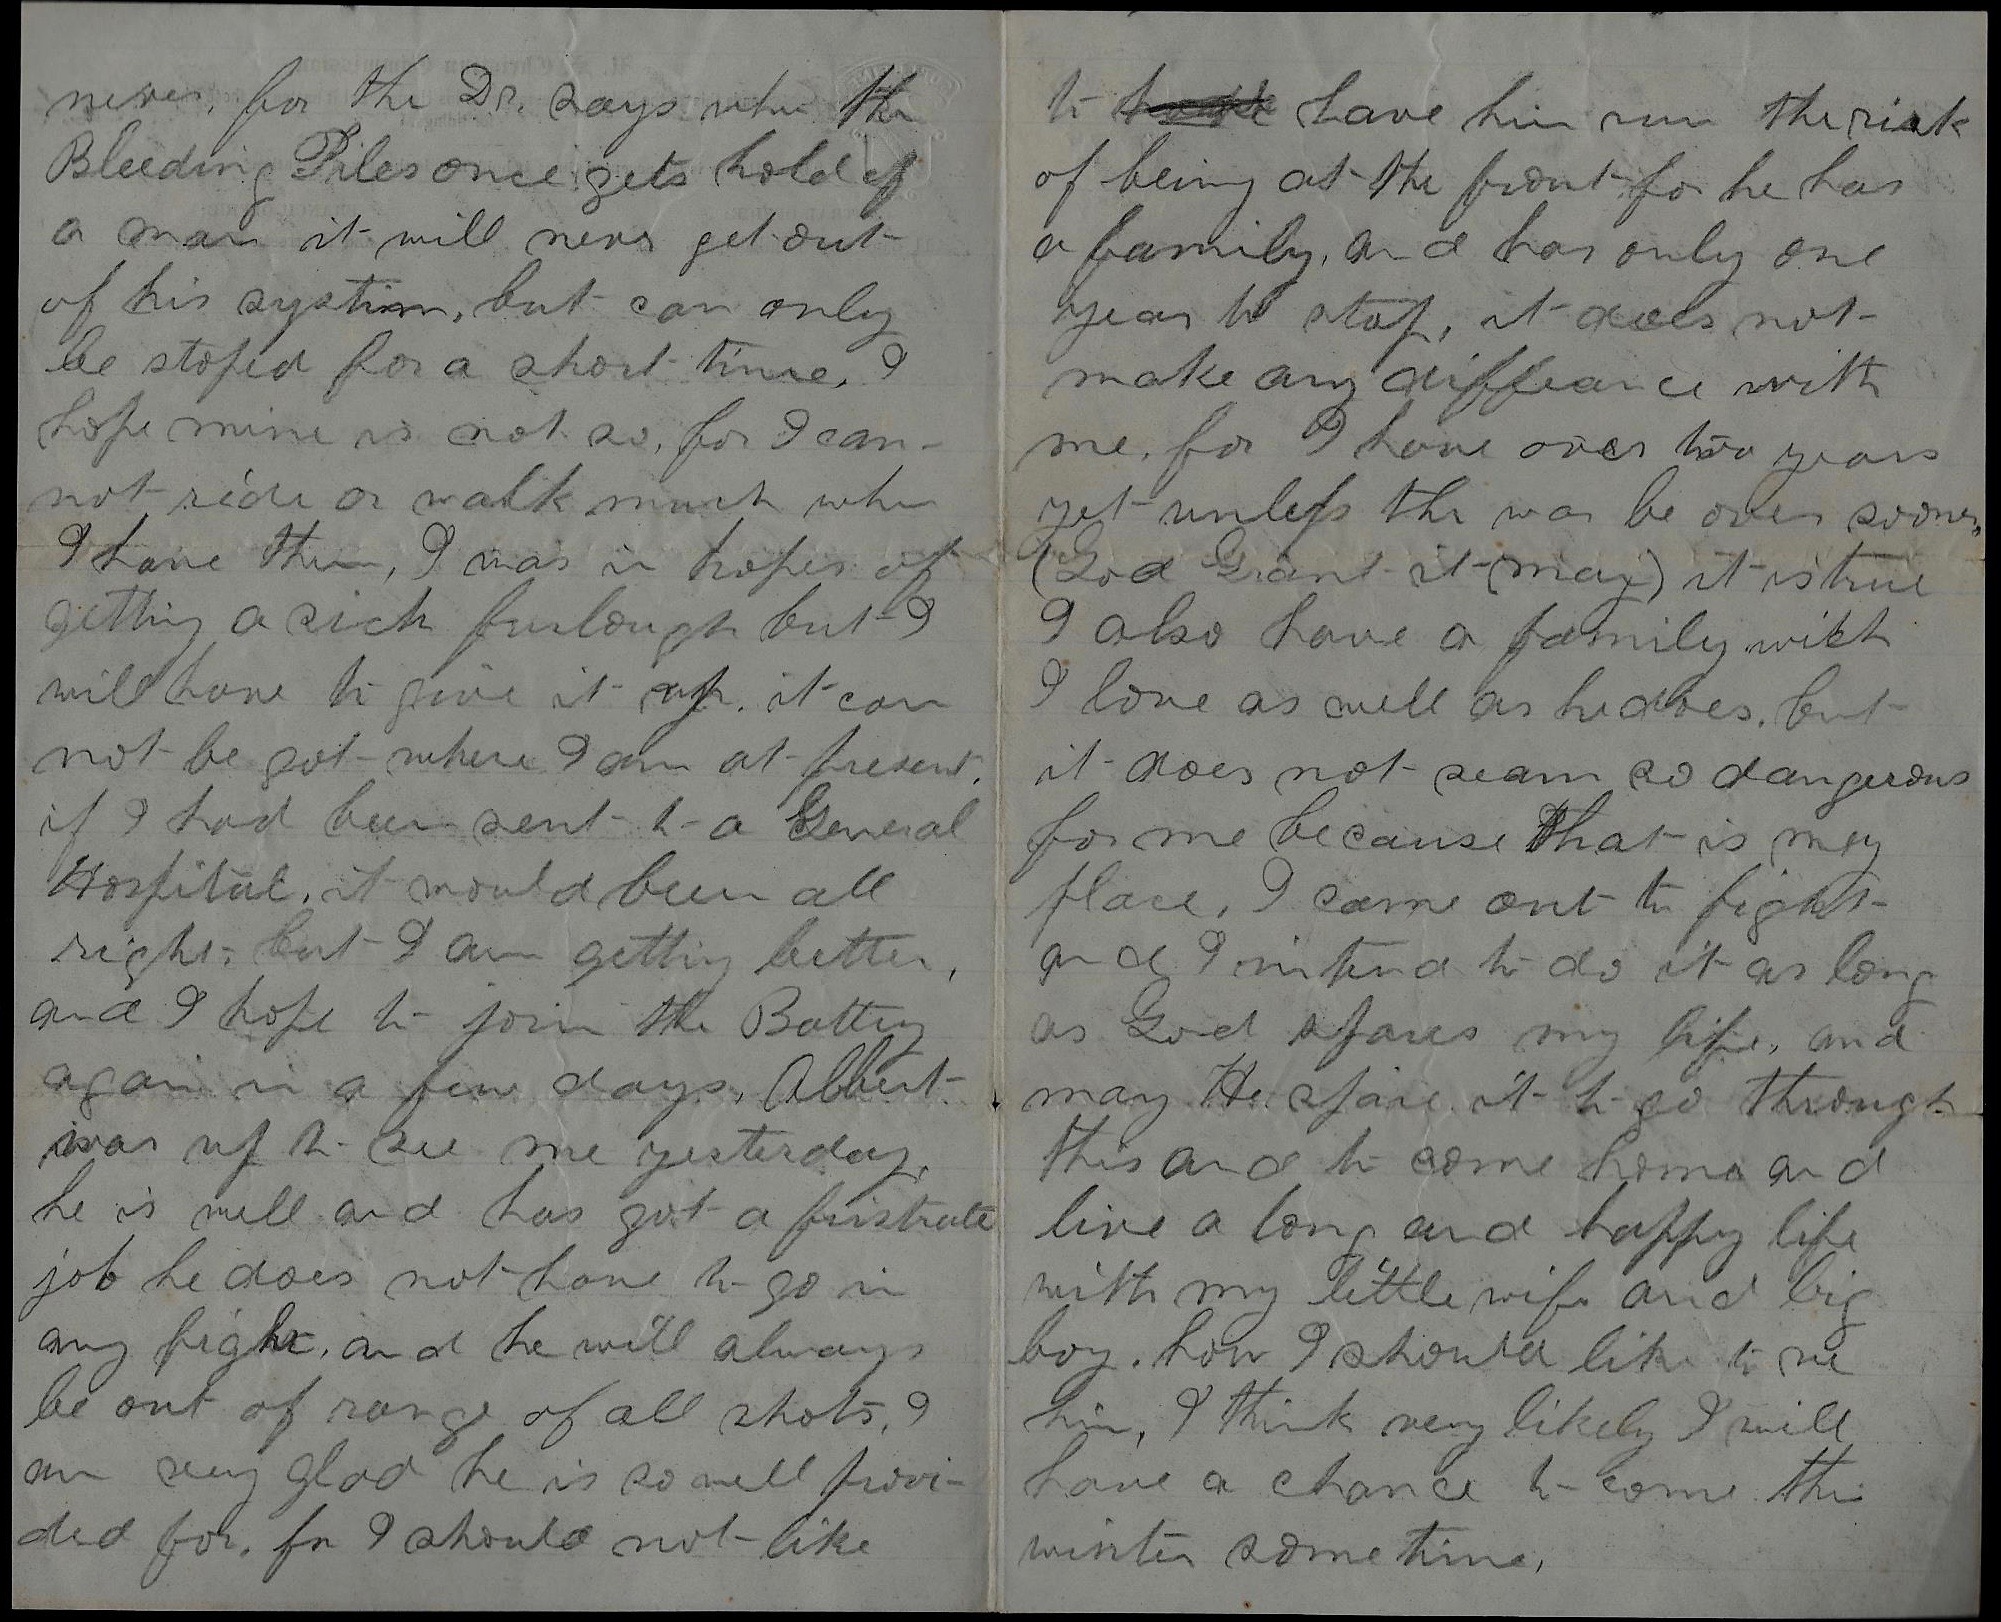 never, for the Dr. says when the
Bleeding Piles once gets hold of
a man it will never get out
of his system, but can only
be stoped for a short time, I
hope mine is not so, for I can-
not ride or walk much when
I have them, I was in hopes of
getting a sick furlough but I
will have to give it up. it can
not be got where I am at present.
if I had been sent to a General
Hospital, it would been all
right, but I am getting better,
and I hope to join the Battery
again in a few days, Albert
was up to see me yesterday,
he is well and has got a firstrate
job he does not have to go in
any fight, and he will always
be out of range of all shots, I
am very glad he is so well provi-
ded for, for I should not like
to have him run the risk
of being at the front for he has
a family, and has only one
year to stop, it does not
make any differance with
me, for I have over two years
yet unless the war be over sooner,
(God Grant it (may) it is true
I also have a family wich
I love as well as he does, but
it does not seam so dangerous
for me because that is my
place, I came out to fight
and I intend to do it as long
as God spares my life, and
may He spare it to go through
this and to come home and
live a long and happy life
with my little wife and big
boy. how I should like to see
him, I think very likely I will
have a chance to come this
winter some time,